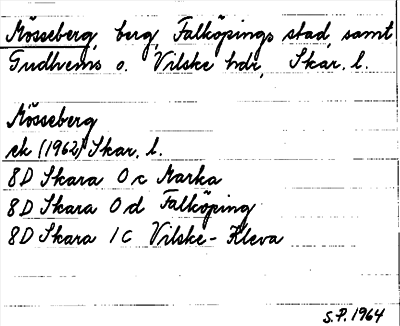 Mösseberg, berg, Falköpings stad, samt
Gudhems o. Vilske hdr, Skar. l.
Mösseberg
ek (1962) Skar. l.
8D Skara 0c Marka
8D Skara 0d Falköping
8D Skara 1C Vilske-Kleva
S.P. 1964